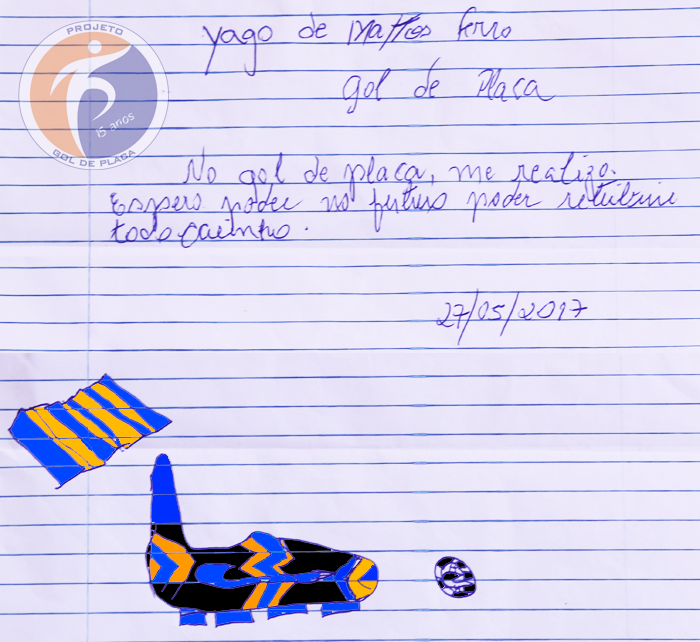 PROJETO
15 anos
GOL DE PLACA
Yago de Mattos Ferro
Gol de Placa
No gol de placa, me realizo.
Espero poder no futuro poder retribuir
todo carinho.
27/05/2017